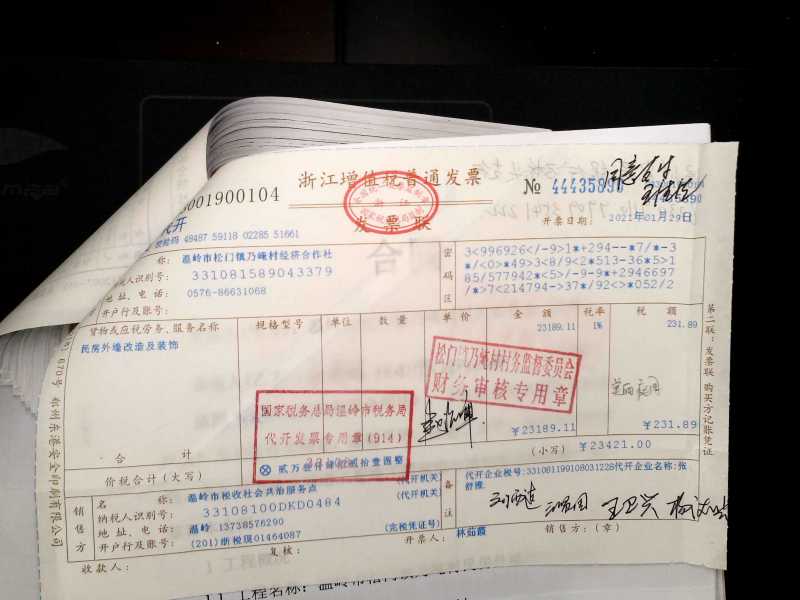 浙江增值税普通发票
001900104
№ 44435890
同意支出
代开
发票联
校验码 48487 59118 02285 51661
开票日期： 2021年01月29日
称： 温岭市松门镇乃崦村经济合作社
人识别号： 331081589043379
地址、电话： 0576-86631068
开户行及账号：
密码区
3<996926</-9>1*+294--*7/*-3
*/<0>*49>3<8/9<2*513-36*5>1
85/577942*<5>/-9-9*+2946697
/*>7<214794->37*/92<>*052/2
货物或应税劳务、服务名称 规格型号 单位 数量 单价 金额 税率 税额
民房外墙改造及装饰 23189.11 1% 231.89
松门镇乃崦村村务监督委员会
财务审核专用章
国家税务总局温岭市税务局
代开发票专用章(914)
合计 ￥23189.11 ￥231.89
价税合计（大写） ⊗ 贰万叁仟肆佰贰拾壹圆整 （小写） ￥23421.00
销售方
名称： 温岭市税收社会共治服务点 （代开机关）
纳税人识别号： 33108100DKD0484 （代开机关）
地址、电话： 温岭 13738576290
开户行及账号： (201)浙税现01464087 （完税凭证号）
备注
代开企业税号:331081199108031228代开企业名称:张
收款人： 复核： 开票人： 林茹霞 销售方：（章）
第二联：发票联 购买方记账凭证
1 工程概况